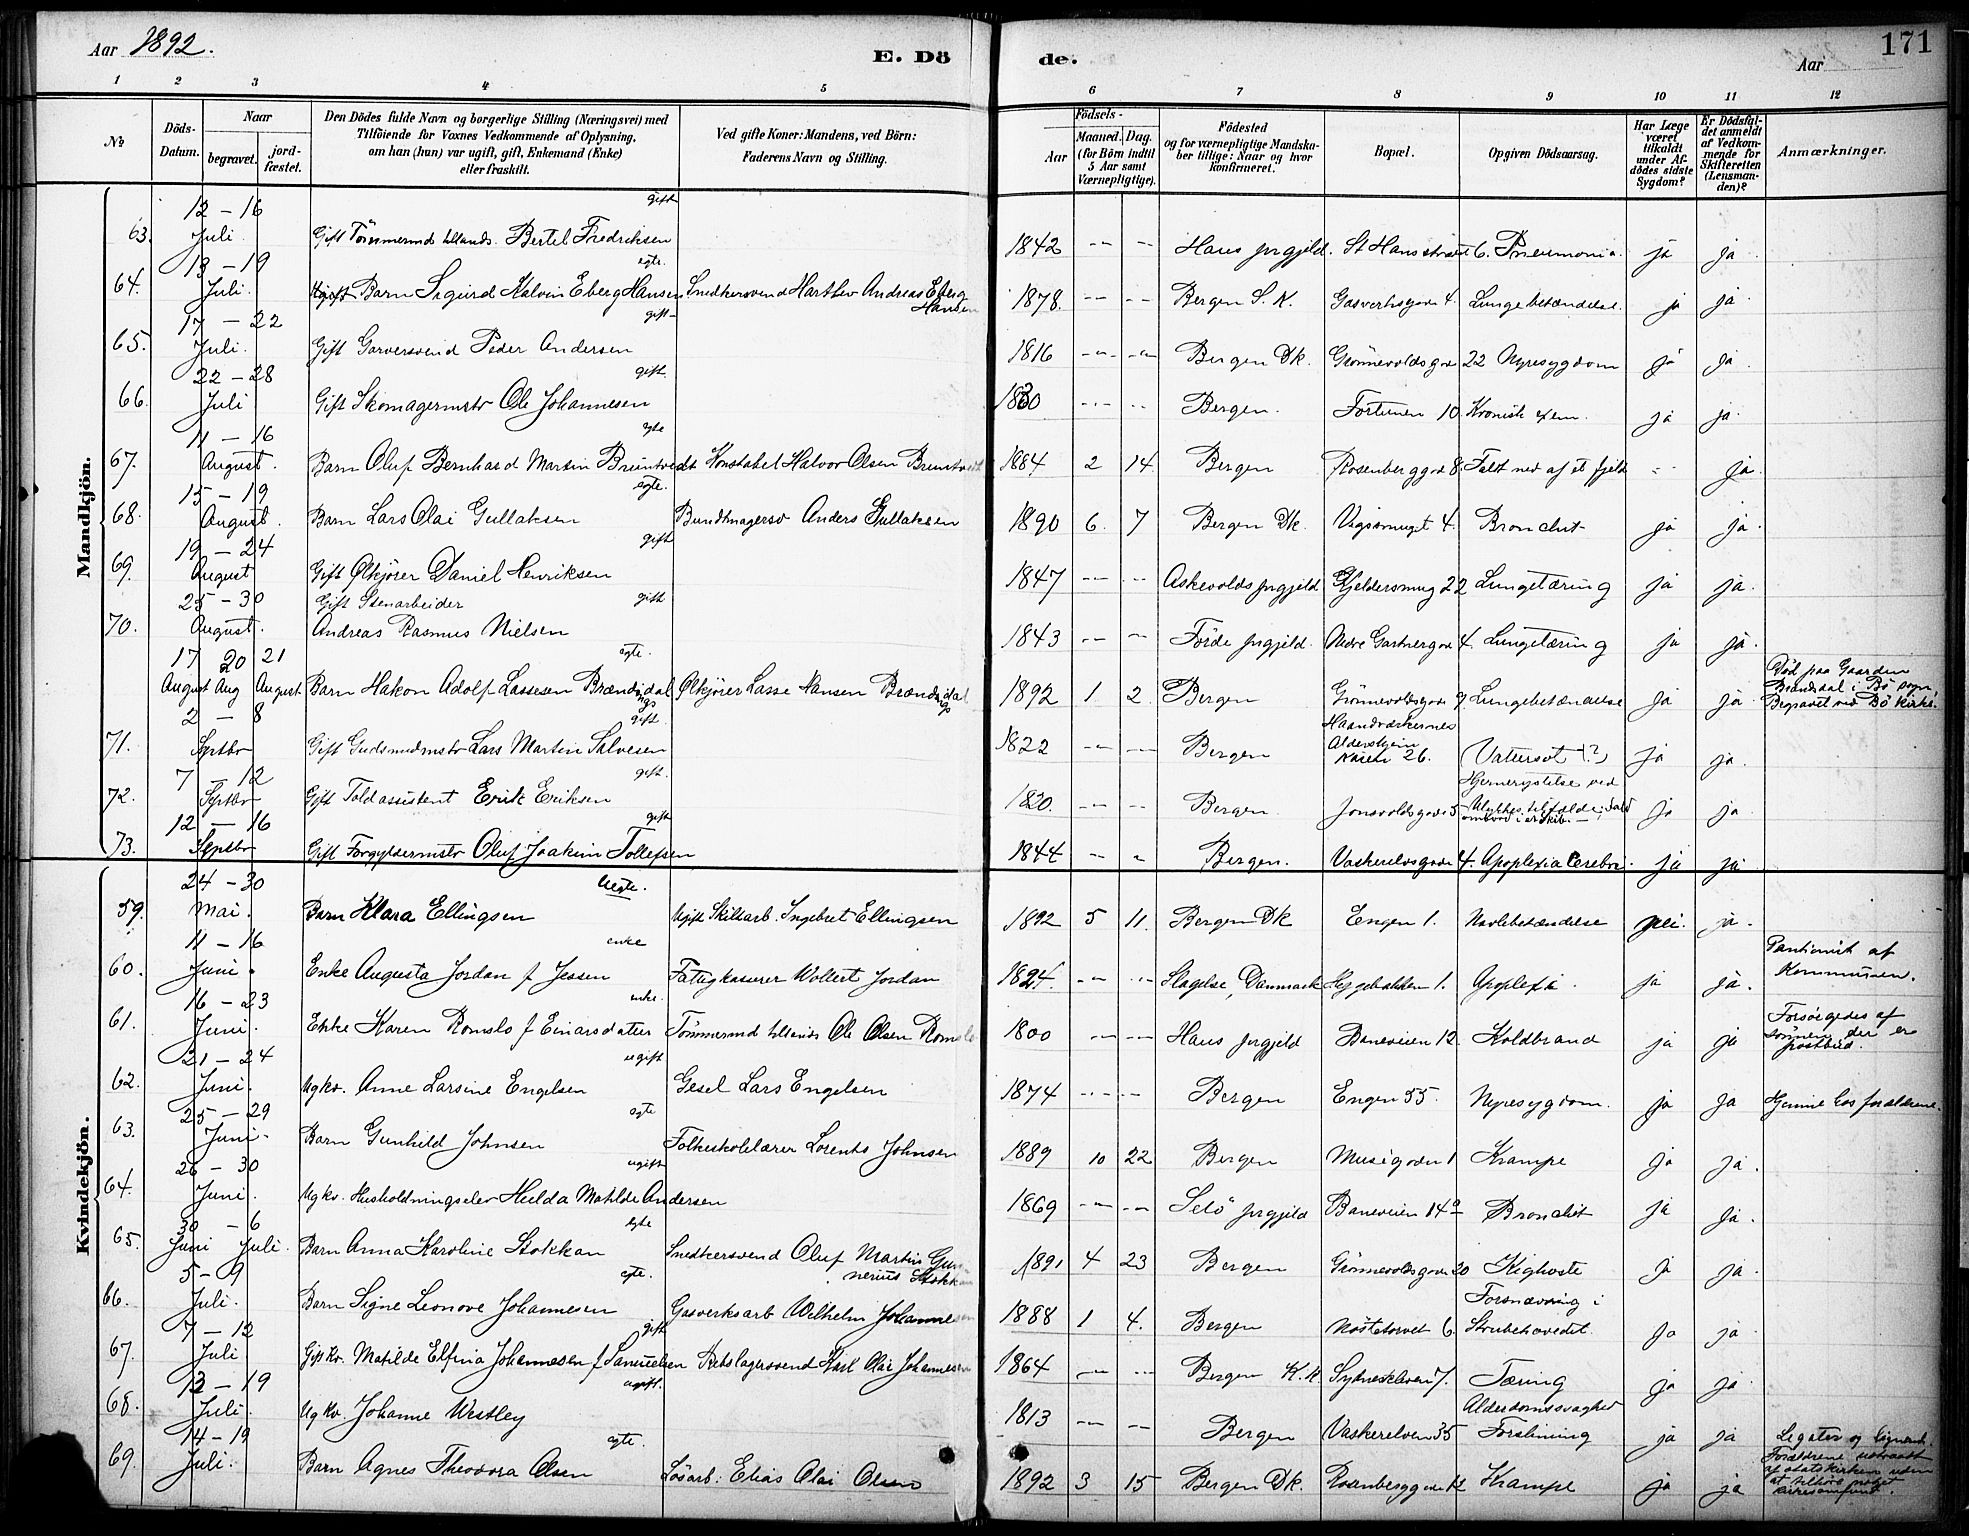 Aar 1892.
E. Dö
de.
Aar
171
1 2 3 4 5 6 7 8 9 10 11 12
No
Döds-Datum.
Naar
begravet.
jord-fæstet.
Den Dödes fulde Navn og borgerlige Stilling (Næringsvei) med
Tilföiende for Voxnes Vedkommende af Oplysning,
om han (hun) var ugift, gift, Enkemand (Enke)
eller fraskilt.
Ved gifte Koner: Mandens, ved Börn:
Faderens Navn og Stilling.
Födsels-
Aar
Maaned.
Dag.
(for Börn indtil
5 Aar samt
Værnepligtige).
Födested
og for værnepligtige Mandska-
ber tillige: Naar og hvor
konfirmeret.
Bopæl.
Opgiven Dödsaarsag.
Har Læge
været
tilkaldt
under Af-
dödes sidste
Sygdom?
Er Dödsfal-
det anmeldt
af Vedkom-
mende for
Skifteretten
(Lensman-
den)?
Anmærkninger.
Mandkjön.
63. 12 – 16 Juli. Gift Bertel Fredriksen gift 1842 Haus prgjeld. St Hansstræd 6. Pneumonia. ja ja
64. 13 – 19 Juli. Barn Sigurd Kalvin Eberg Hansen egte. Snedkersvend Harthev Andreas Eberg Hansen 1878. Bergen S. K. Gasverksgade 4. Lungebetændelse. ja ja
65. 17 – 22 Juli. Gift Garversvend Peder Andersen gift 1816 Bergen Dk. Grønnevoldsgade 22 Nyresygdom ja ja
66. 22 – 28 Juli Gift Skomagermstr Ole Johannesen gift. 1830 Bergen. Fortunen 10 Kronisk exem. ja ja
67. 11 – 16 August. Barn Oluf Bernhard Martin Bruntvedt egte Konstabel Halvor Olsen Bruntvedt 1884 2 14. Bergen Rosenberggade 8. Faldt ned af et fjeld ja
68. 15 – 19 August. Barn Lars Olai Gullaksen egte. Bundtmagersv Anders Gullaksen 1890 6. 7 Bergen Dk. 4. Bronchit ja ja
69. 19 – 24 August Gift Ølkjører Daniel Henriksen gift 1847 Askevolds prgjeld Kjeldersmug 22 Lungetæring ja ja
70. 25 – 30 August. Gift Stenarbeider Andreas Rasmus Nielsen gift 1843 Førde prgjeld. Nedre Gartnergade 4. Lungetæring ja ja
17 August 20 Aug 21 August Barn Hakon Adolf Lassesen Brændsdal egte. Ølkjører Lasse Hansen Brændsdal 1892 1 2. Bergen Grønnevoldsgade 9 Lungebetændelse ja ja Død paa Gaarden Brændsdal i Bø sogn, Begravet ved Bø kirke.
71. 2 – 8 Septbr Gift Gudsmedmstr Lars Martin Salvesen gift. 1822 Bergen Haandværkernes Aldershjem Kaien 26. Vatersot (?) ja ja
72. 7 – 12 Septbr Gift Toldassistent Erik Eriksen gift. 1820. Bergen Jonsvoldsgade 5 Hjernerystelse ved Ulykkestilfælde: Fald ombord i et skib. ja ja
73. 12 – 16 Septbr Gift Forgyldermstr Oluf Joakim Tollefsen gift 1844 Bergen. Vaskerelvsgade 4. Apoplexia Cerebri. ja ja
Kvindekjön.
59. 24 – 30 Mai. Barn Klara Ellingsen Uegte. Ugift Skibsarb. Ingebret Ellingsen 1892 5 11. Bergen Dk Engen 1. Navlebetændelse nei. ja
60. 11 – 16 Juni. Enke Augusta Jordan f Jessen enke Fattigkasserer Woltert Jordan 1824. Slagelse, Danmark Hyggebakken 1. Apoplexia. ja ja. Pantionist af Kommunen.
61. 16 – 23 Juni. Enke Karen Romslo f Einarsdatter enke. Ole Olsen Romslo 1800 Haus prgjeld Baneveien 12. Koldbrand ja ja Forsørgedes af sønnen der er postbud.
62. 21 – 24 Juni. Ugkv. Anne Larsine Engelsen ugift Gesel Lars Engelsen 1874 Bergen Engen 55. Nyresygdom. ja ja Hjemme hos forældrene.
63. 25 – 29 Juni. Barn Gunhild Johnsen egte Folkeskolelærer Lorents Johnsen 1889 10 22 Bergen Musegaden 1 Krampe ja ja.
64. 26 – 30 Juni. Ugkv. Husholdningselev Hulda Matilde Andersen ugift 1869 Selø prgjeld Baneveien 14a Bronchit ja ja.
65. 30 Juni – 6 Juli. Barn Anna Karoline Stokkan egte Snedkersvend Oluf Martin Gunnerius Stokkan 1891 4 23 Bergen Grønnevoldsgade 20 Kighoste ja ja
66. 5 – 9 Juli. Barn Signe Leonore Johannesen egte. Gasverksarb Wilhelm Johannesen 1888 1 4. Bergen Nøstetorvet 6. Forsnævring i Strubehovedet. ja ja
67. 7 – 12 Juli Gift Kv. Matilde Elfina Johannesen f Samuelsen gift Karl Olai Johannesen 1864 Bergen K.K. Sydneskleven 7. Tæring ja ja
68. 13 – 19 Juli. Ugkv. Johanne Westley ugift. 1813 Bergen Vaskerelven 35 Alderdomssvaghed Forsliming ja ja Legater og
69. 14 – 19 Juli. Barn Agnes Theodora Olsen egte. Løsarb: Elias Olai Olsen 1892 3 15 Bergen Dk. Rosenberggaden 12 Krampe ja ja Forældrene udtraadt af statskirken uden at tilhøre noget kirkesamfund.